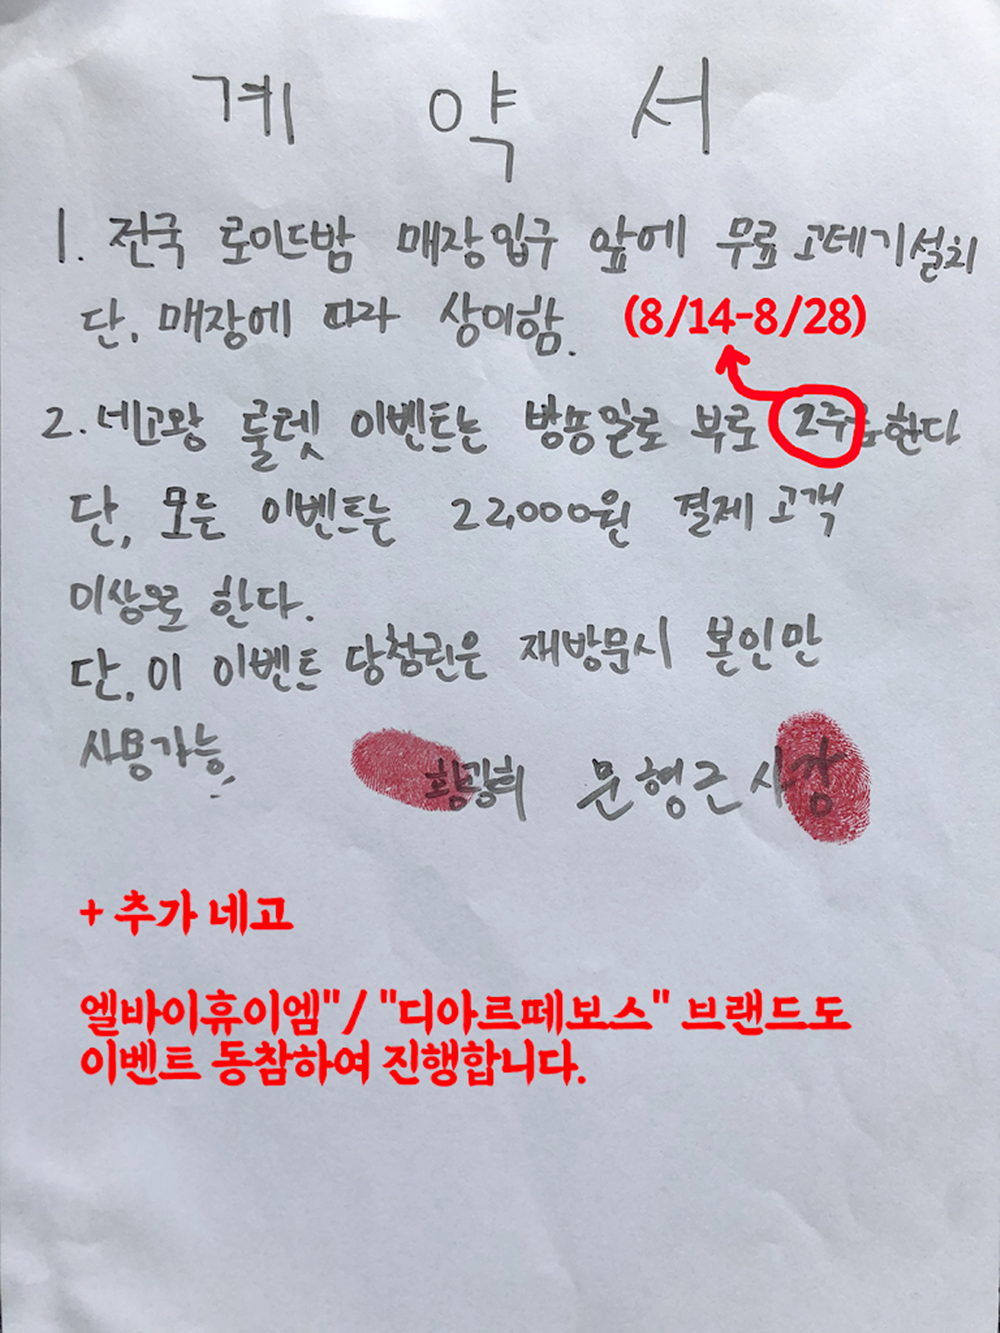 계 약 서
1. 전국 로이드밤 매장입구 앞에 무료 고데기설치
단, 매장에 따라 상이함. (8/14-8/28)
2. 네고왕 룰렛 이벤트는 방송일로 부로 2주 한다
단, 모든 이벤트는 22,000원 결제 고객
이상으로 한다.
단, 이 이벤트 당첨권은 재방문시 본인만
사용가능.
황광희 문형근 사장
+ 추가 네고
엘바이휴이엠"/ "디아르떼보스" 브랜드도
이벤트 동참하여 진행합니다.